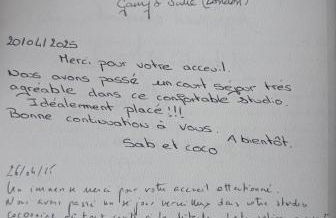 (London)
20/04/2025
Merci pour votre acceuil.
Nous avons passé un court séjour très
agréable dans ce confortable studio.
Idéalement placé !!!
Bonne continuation à vous.
A bientôt.
Sab et coco
Un immense merci pour votre accueil
Nous avons passé un séjour dans votre studio